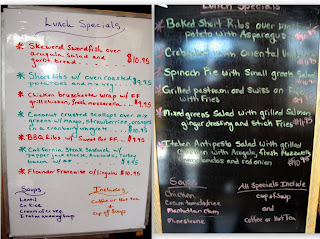 Lunch Specials
* Skewered Swordfish over
arugula salad and
garlic bread $10.95
* Short Ribs w/ oven roasted
potatoes and mix veg. $9.95
* Chicken bruschetta wrap w/ FF
grilled chicken, fresh mozzarella
* Coconut crusted scallops over mix
greens w/ mango, strawberries, oranges
in a cranberry vinegrete $10.95
* BBQ Ribs w/ FF
* California Steak Sandwich w/
pepper jack cheese, Avocado, Turkey
bacon w/ FF
* Flounder Francaise $10.95
Soups
Lentil
Chicken
Cream of
Italian wedding Soup
Includes
Coffee or Hot Tea
+
Cup of Soup
Lunch Specials
* Baked Short Ribs over
potato with Asparagus
with Oriental
* Spinach Pie with Small greek Salad
* Grilled pastrami and Swiss on
with Fries
* Mixed greens Salad with grilled Salmon
ginger dressing and Steak Fries
* Antipesto Salad with grilled
Chicken with Arugula, fresh Mozzarella
and red onion
Soup
Chicken
Cream tomato
Manhattan Clam
Minestrone
All Specials Include
cup of Soup
and
Coffee or Hot Tea